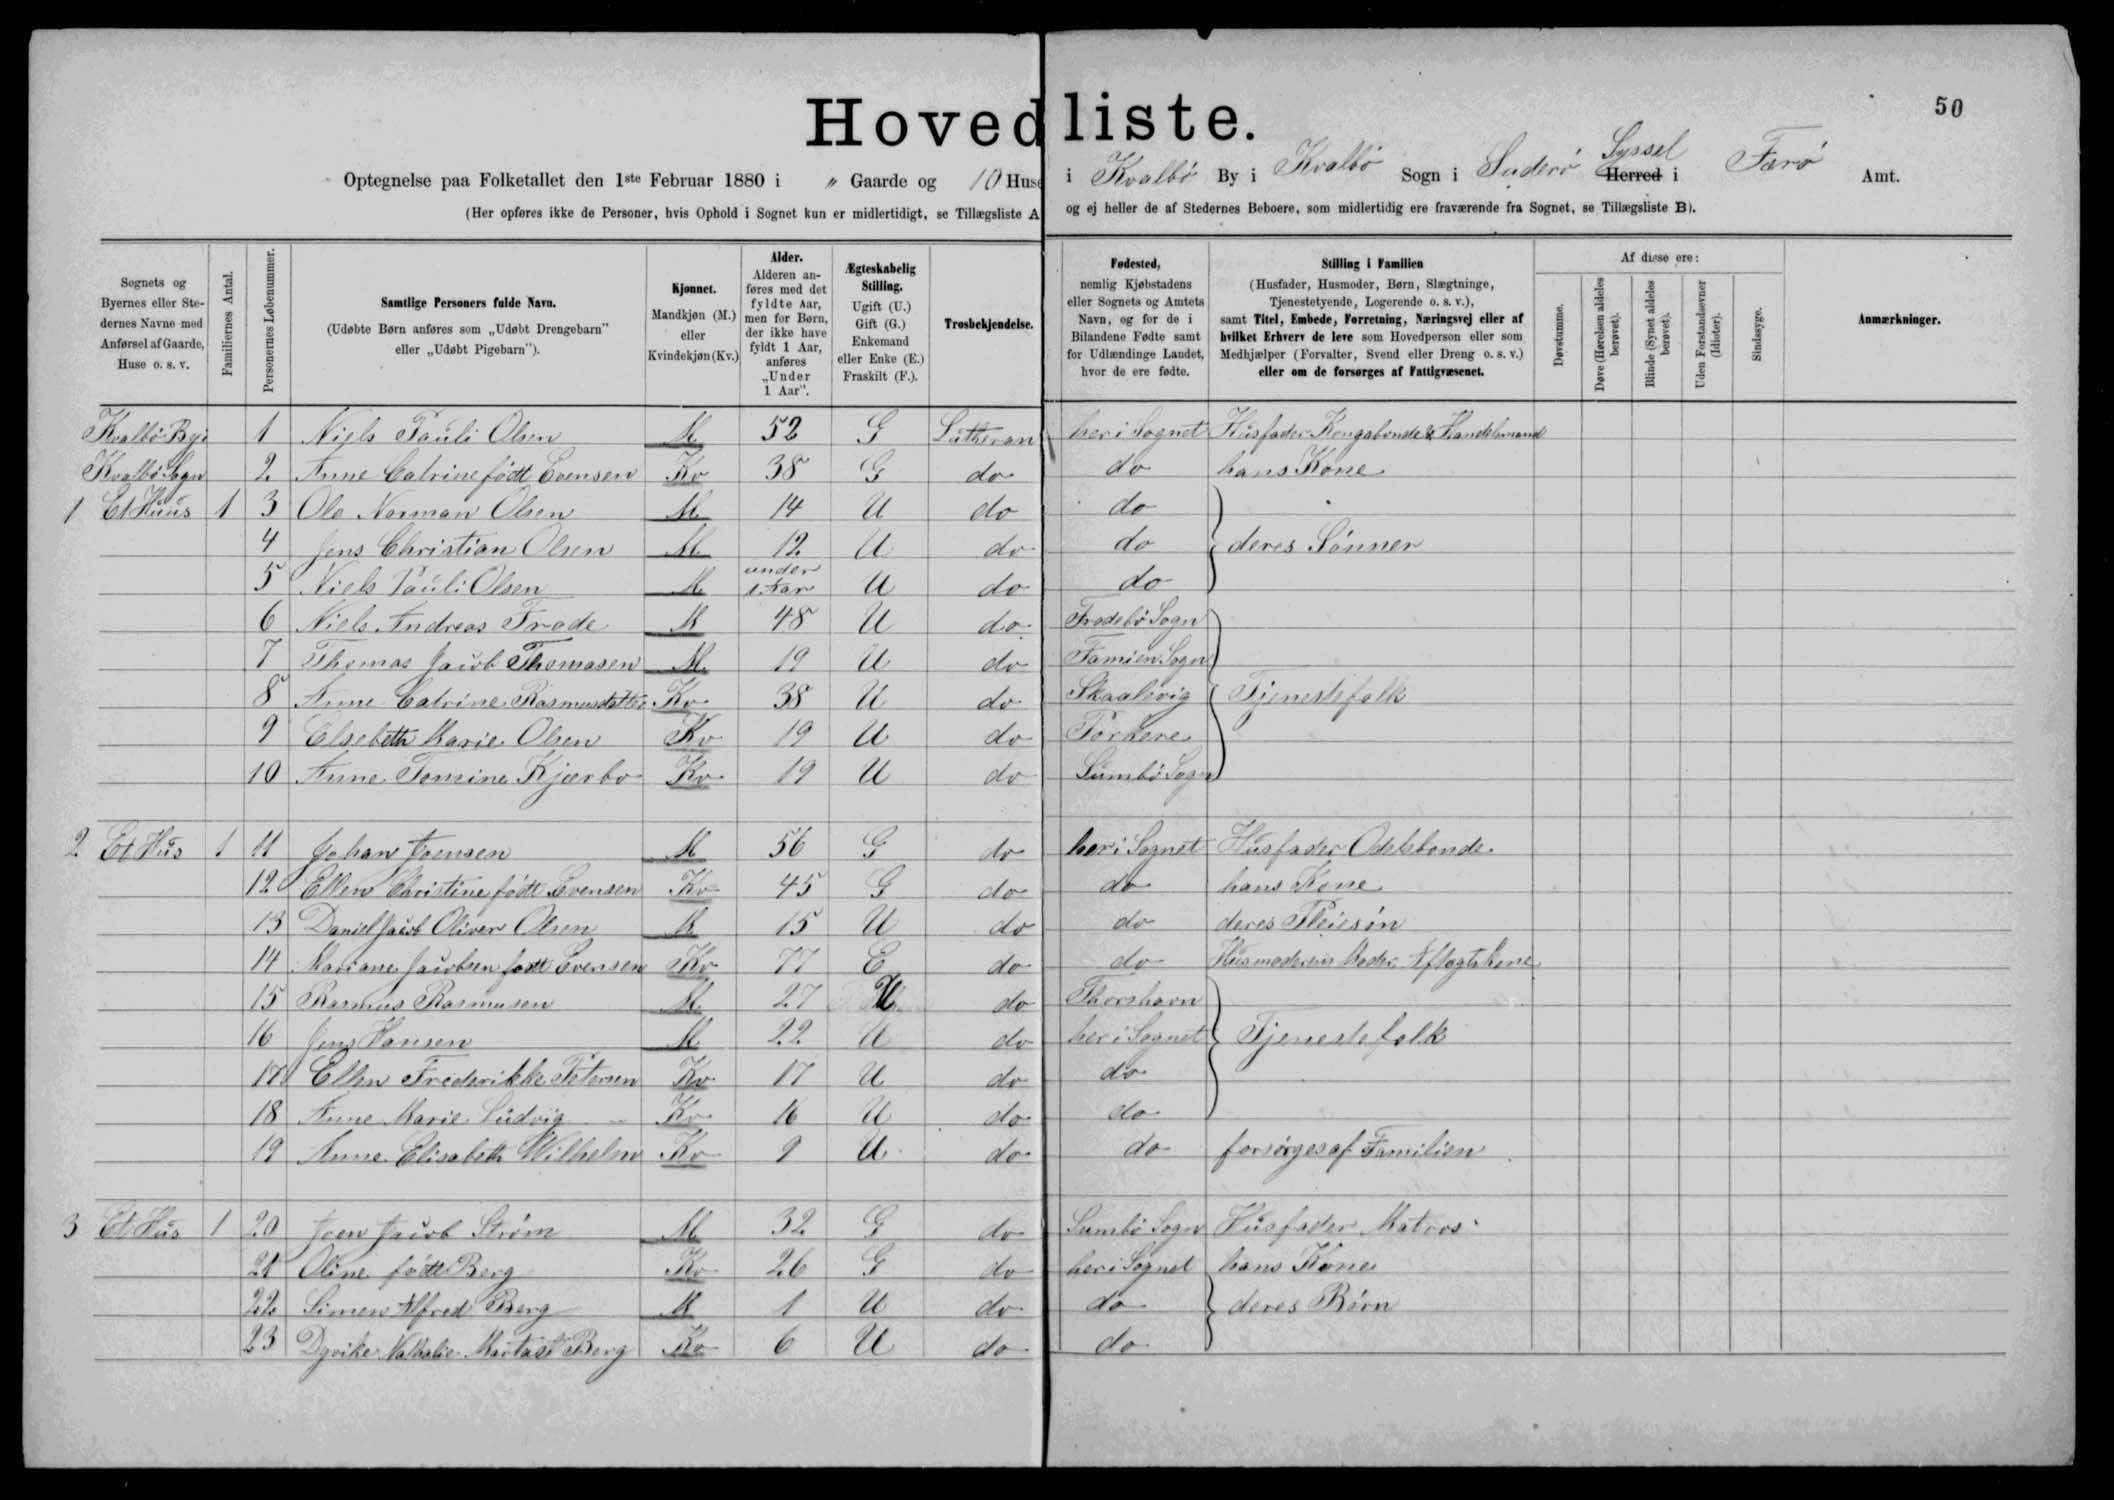 Hovedliste.
50
Optegnelse paa Folketallet den 1ste Februar 1880 i " Gaarde og 10 Huse i Kvalbø By i Kvalbø Sogn i Suderø Syssel Herred i Færø Amt.
(Her opføres ikke de Personer, hvis Ophold i Sognet kun er midlertidigt, se Tillægsliste A og ej heller de af Stedernes Beboere, som midlertidig ere fraværende fra Sognet, se Tillægsliste B).
Sognets og Byernes eller Stedernes Navne med Anførsel af Gaarde, Huse o. s. v.
Familiernes Antal.
Personernes Løbenummer.
Samtlige Personers fulde Navn.
(Udøbte Børn anføres som „Udøbt Drengebarn" eller „Udøbt Pigebarn").
Kjønnet.
Mandkjøn (M.) eller Kvindekjøn (Kv.)
Alder.
Alderen anføres med det fyldte Aar, men for Børn, der ikke have fyldt 1 Aar, anføres „Under 1 Aar".
Ægteskabelig Stilling.
Ugift (U.) Gift (G.) Enkemand eller Enke (E.) Fraskilt (F.).
Trosbekjendelse.
Fødested,
nemlig Kjøbstadens eller Sognets og Amtets Navn, og for de i Bilandene Fødte samt for Udlændinge Landet, hvor de ere fødte.
Stilling i Familien
(Husfader, Husmoder, Børn, Slægtninge, Tjenestetyende, Logerende o. s. v.), samt Titel, Embede, Forretning, Næringsvej eller af hvilket Erhverv de leve som Hovedperson eller som Medhjælper (Forvalter, Svend eller Dreng o. s. v.) eller om de forsørges af Fattigvæsenet.
Af disse ere:
Døvstumme.
Døve (Hørelsen aldeles berøvet).
Blinde (Synet aldeles berøvet).
Uden Forstandsevner (Idioter).
Sindssyge.
Anmærkninger.
Kvalbø By i 1 Niels Pauli Olsen M 52 G Lutheran her i Sognet Husfader Kongsbonde & Handelsmand
Kvalbø Sogn 2 Anne Catrine født Evensen Kv 38 G do do hans Kone
1 Et Huus 1 3 Ole Norman Olsen M 14 U do do
4 Jens Christian Olsen M 12 U do do deres Sønner
5 Niels Pauli Olsen M under 1 Aar U do do
6 Niels Andreas Frode M 48 U do Frodebø Sogn
7 Thomas Jacob Thomasen M 19 U do Famien Sogn
8 Anne Catrine Rasmusdatter Kv 38 U do Skaalevig Tjenestefolk
9 Elsebeth Marie Olsen Kv 19 U do Porkere
10 Anne Tomine Kjærbo Kv 19 U do Sumbø Sogn
2 Et Hus 1 11 Johan Joensen M 56 G do her i Sognet Husfader Odelsbonde
12 Ellen Christine født Evensen Kv 45 G do do hans Kone
13 Daniel Jacob Oliver Olsen M 15 U do do deres Pleiesøn
14 Mariane Jacobsen født Evensen Kv 77 E do do Husmoderens Moder, Aftægtskone
15 Rasmus Rasmusen M 27 U do Thorshavn
16 Jens Hansen M 22 U do her i Sognet Tjenestefolk
17 Ellen Frederikke Petersen Kv 17 U do do
18 Anne Marie Ludvig Kv 16 U do do
19 Anne Elisabeth Wilhelm Kv 9 U do do forsørges af Familien
3 Et Hus 1 20 Joen Jacob Strøm M 32 G do Sumbø Sogn Husfader Matros
21 Oline født Berg Kv 26 G do her i Sognet hans Kone
22 Simen Alfred Berg M 1 U do do deres Børn
23 Nathalie Berg Kv 6 U do do